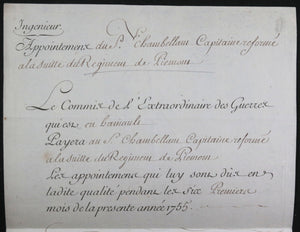 Ingenieur
Appointemens du Sr. Chambellan Capitaine reformé
a la suitte du Regiment de Piemont
Le Commis de l'Extraordinaire des Guerres
qui est en hainault
Payera au Sr. Chambellan Capitaine reformé
a la suitte du Regiment de Piemont
Les appointemens qui luy sont dûs en
ladite qualité pendant les six Premiers
mois de la presente année 1755.